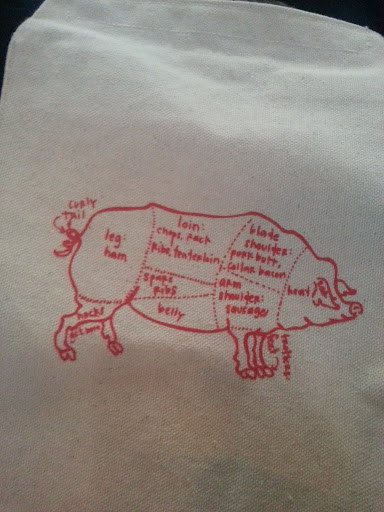 curly
tail
leg:
ham
loin:
chops, rack
ribs, tenterloin,
blade
shoulder:
pork butt,
callna bacon,
spare
ribs
arm
shoulder:
sausage
head
belly
hocks